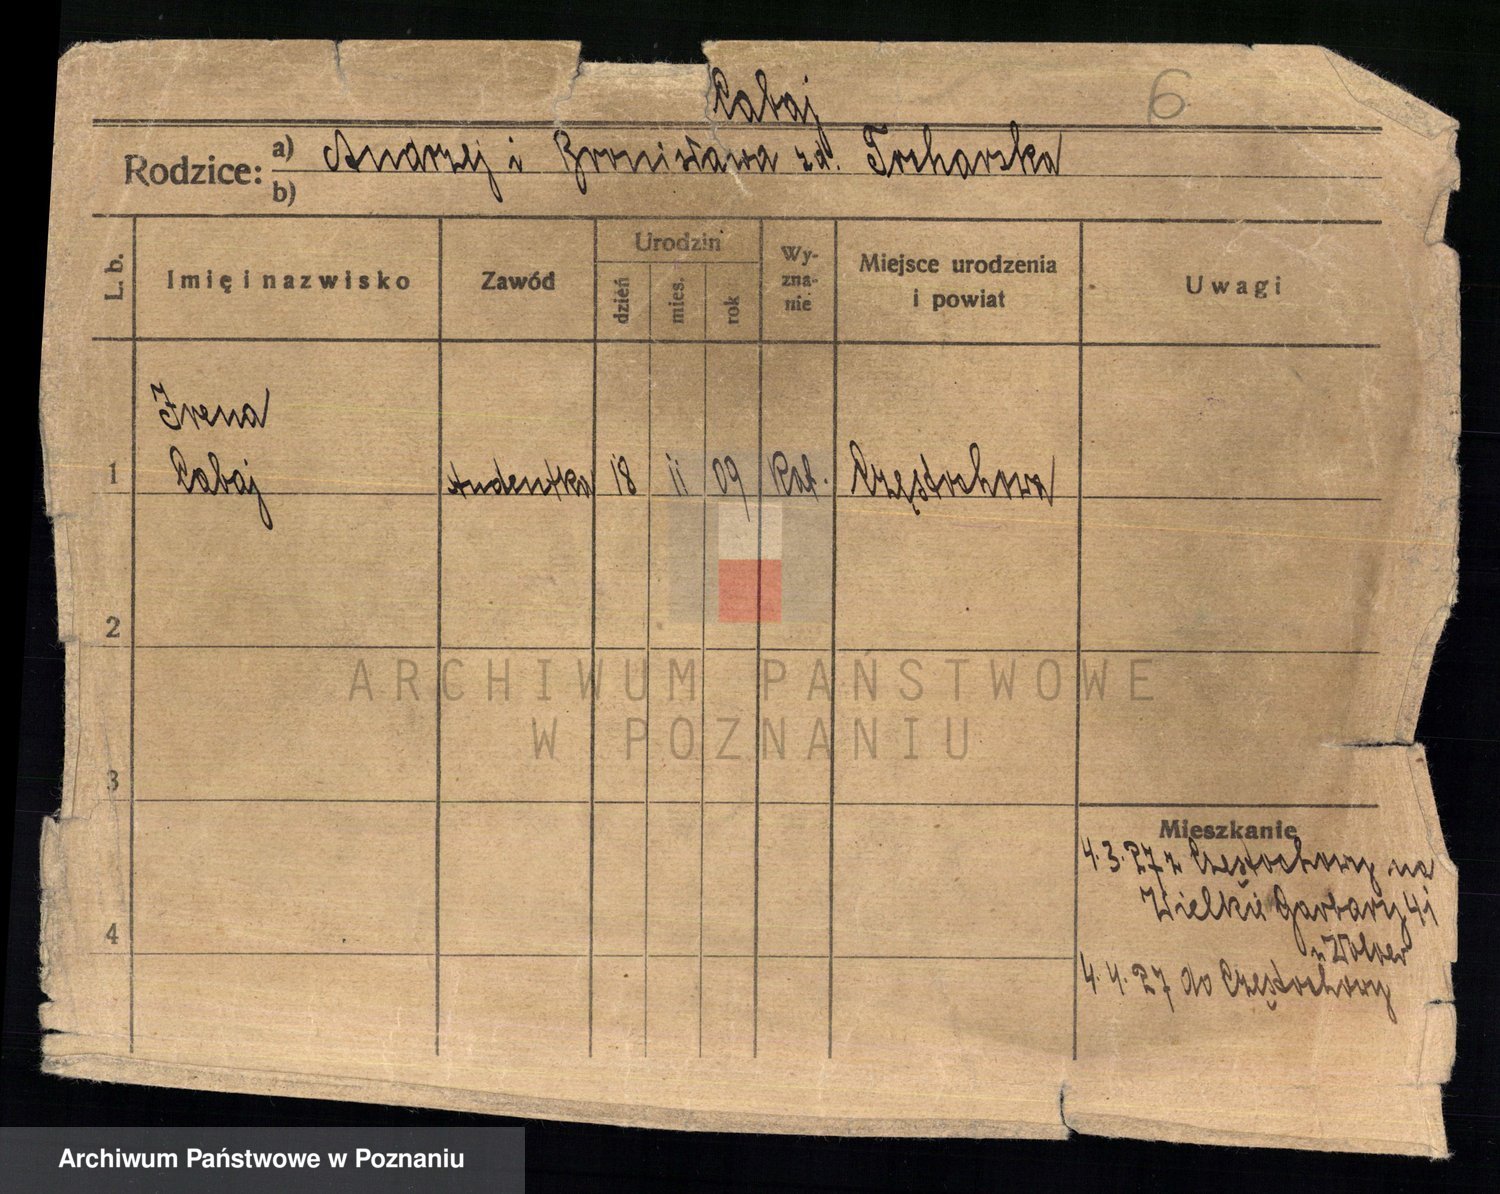 Cabaj
6
Rodzice: a) Andrzej i Bronisława za. Tocharska
b)
L. b.
Imię i nazwisko
Zawód
Urodzin
dzień
mies.
rok
Wy-
zna-
nie
Miejsce urodzenia
i powiat
Uwagi
Irena
1 Cabaj studentka 18 11 09 Kat. Częstochowa
2
3
4
Mieszkanie
4.3.27 z Częstochowy na
Wielkie Garbary 41
u
4.4.27 do Częstochowy
ARCHIWUM PAŃSTWOWE
W POZNANIU
Archiwum Państwowe w Poznaniu